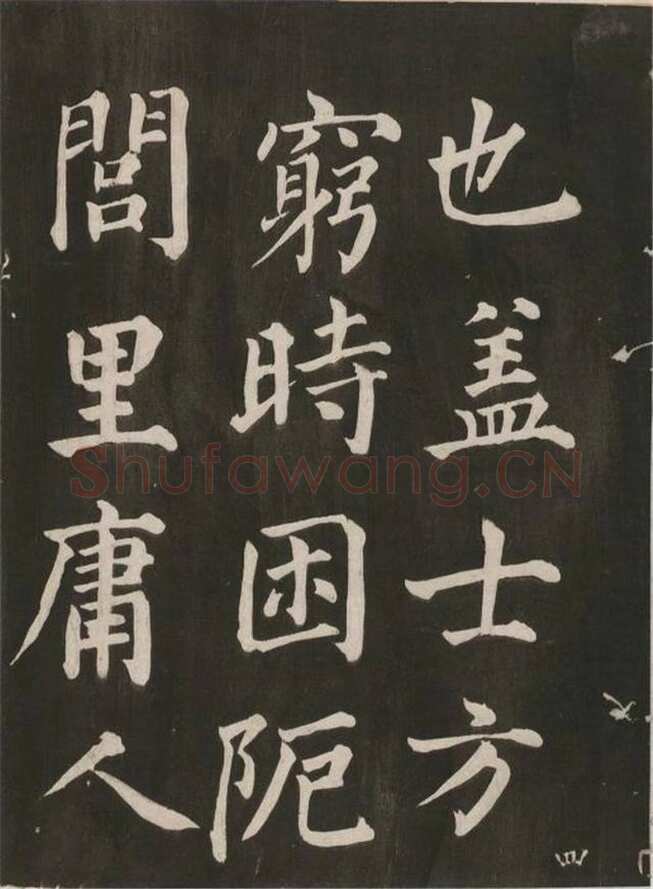 也盖士方
窮時困阨
閭里庸人
四
Shufawang.CN